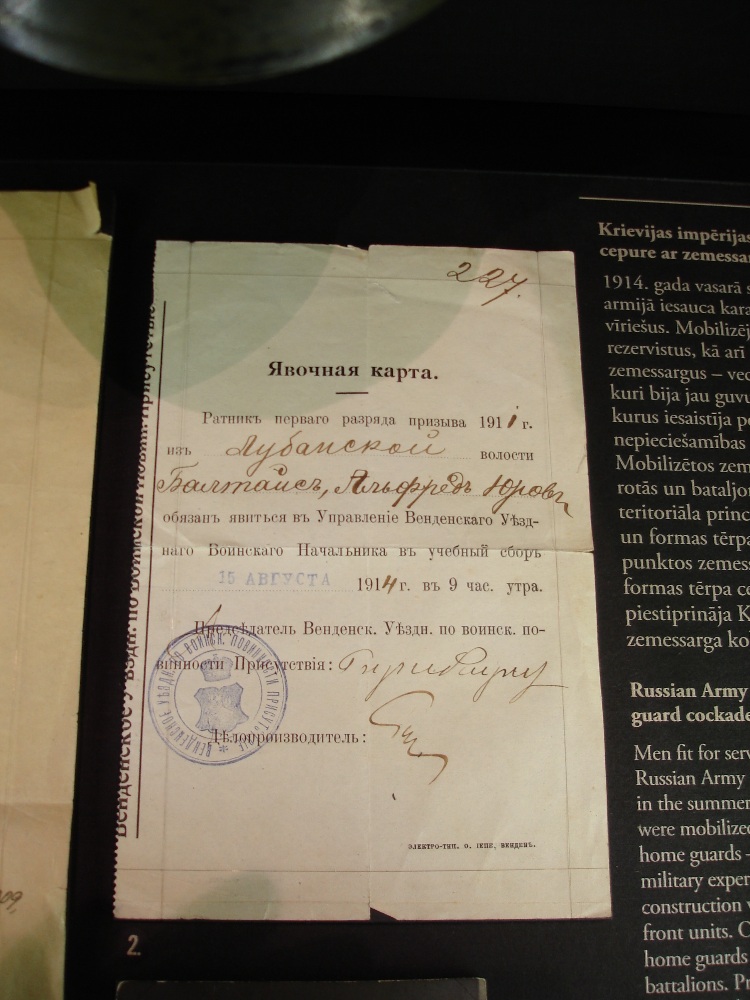 227.
Явочная карта.
Ратникъ перваго разряда призыва 1911 г.
изъ Лубанской волости
Балтайсъ, Альфредъ Юровъ
обязанъ явиться въ Управленіе Венденскаго Уѣзд-
наго Воинскаго Начальника въ учебный сборъ
15 АВГУСТА 1914 г. въ 9 час. утра.
Предсѣдатель Венденск. Уѣздн. по воинск. по-
винности Присутствія:
Дѣлопроизводитель:
ЭЛЕКТРО-ТИП. О. ІЕПЕ, ВЕНДЕНЪ.
Венденское Уѣздн. по Воинской Повин. Присутствіе
ВЕНДЕНСКОЕ УѢЗДНОЕ ПО ВОИНСК. ПОВИННОСТИ ПРИСУТСТВІЕ
2.
Krievijas impērijas
cepure ar zemessar
1914. gada vasarā s
armijā iesauca kara
vīriešus. Mobilizēj
rezervistus, kā arī
zemessargus – vec
kuri bija jau guvu
kurus iesaistīja p
nepieciešamības
Mobilizētos zem
rotās un bataljo
teritoriāla princ
un formas tērpa
punktos zemess
formas tērpa ce
piestiprināja K
zemessarga ko
Russian Army
guard cockade
Men fit for serv
Russian Army
in the summer
were mobilized
home guards –
military exper
construction w
front units. O
home guards
battalions. Pr